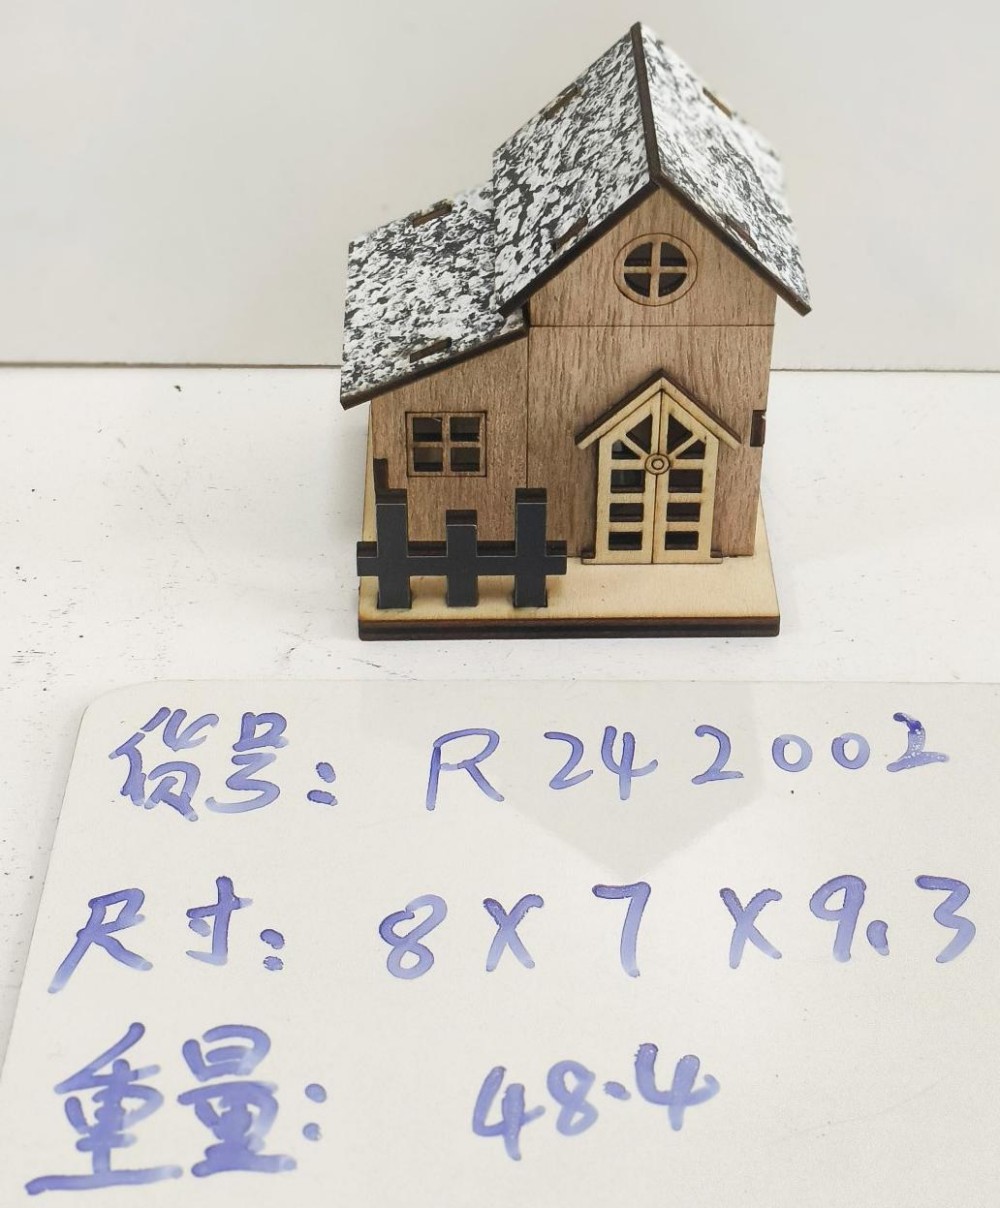 货号: R242002
尺寸: 8X7X9.3
重量: 48.4